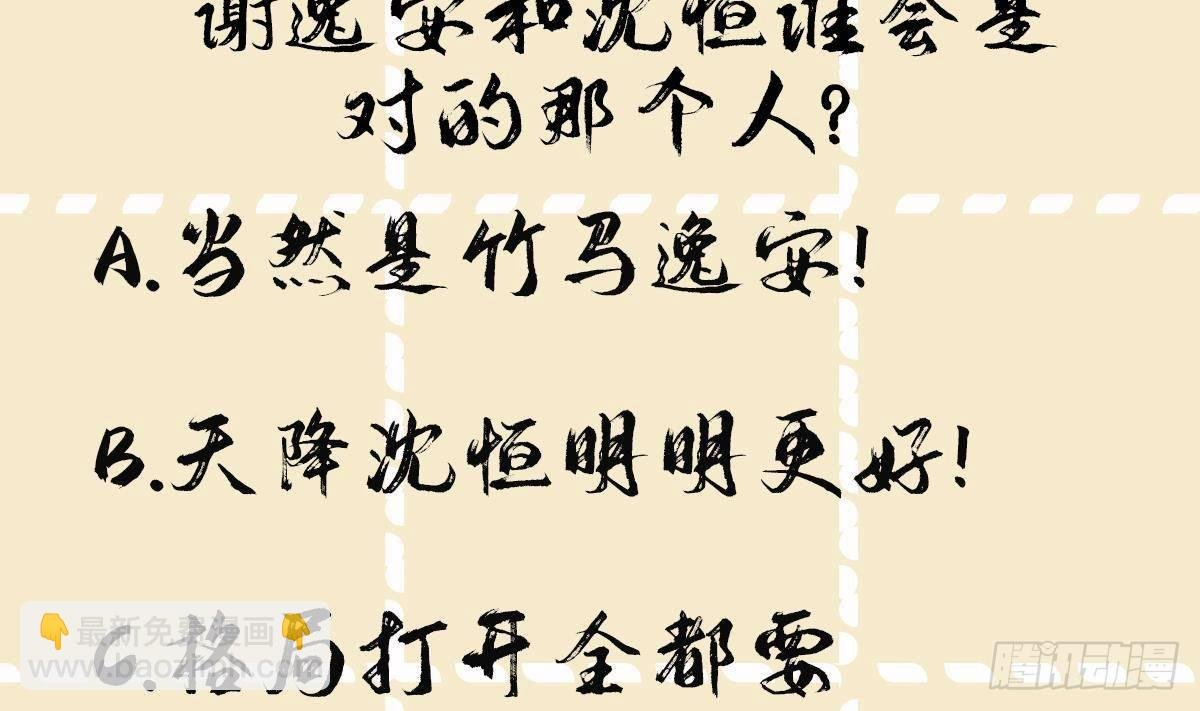 谢逸安和沈恒谁会是
对的那个人?
A.当然是竹马逸安!
B.天降沈恒明明更好!
C.格局打开全都要
👇最新免费漫画👇
www.baozimh.com
腾讯动漫